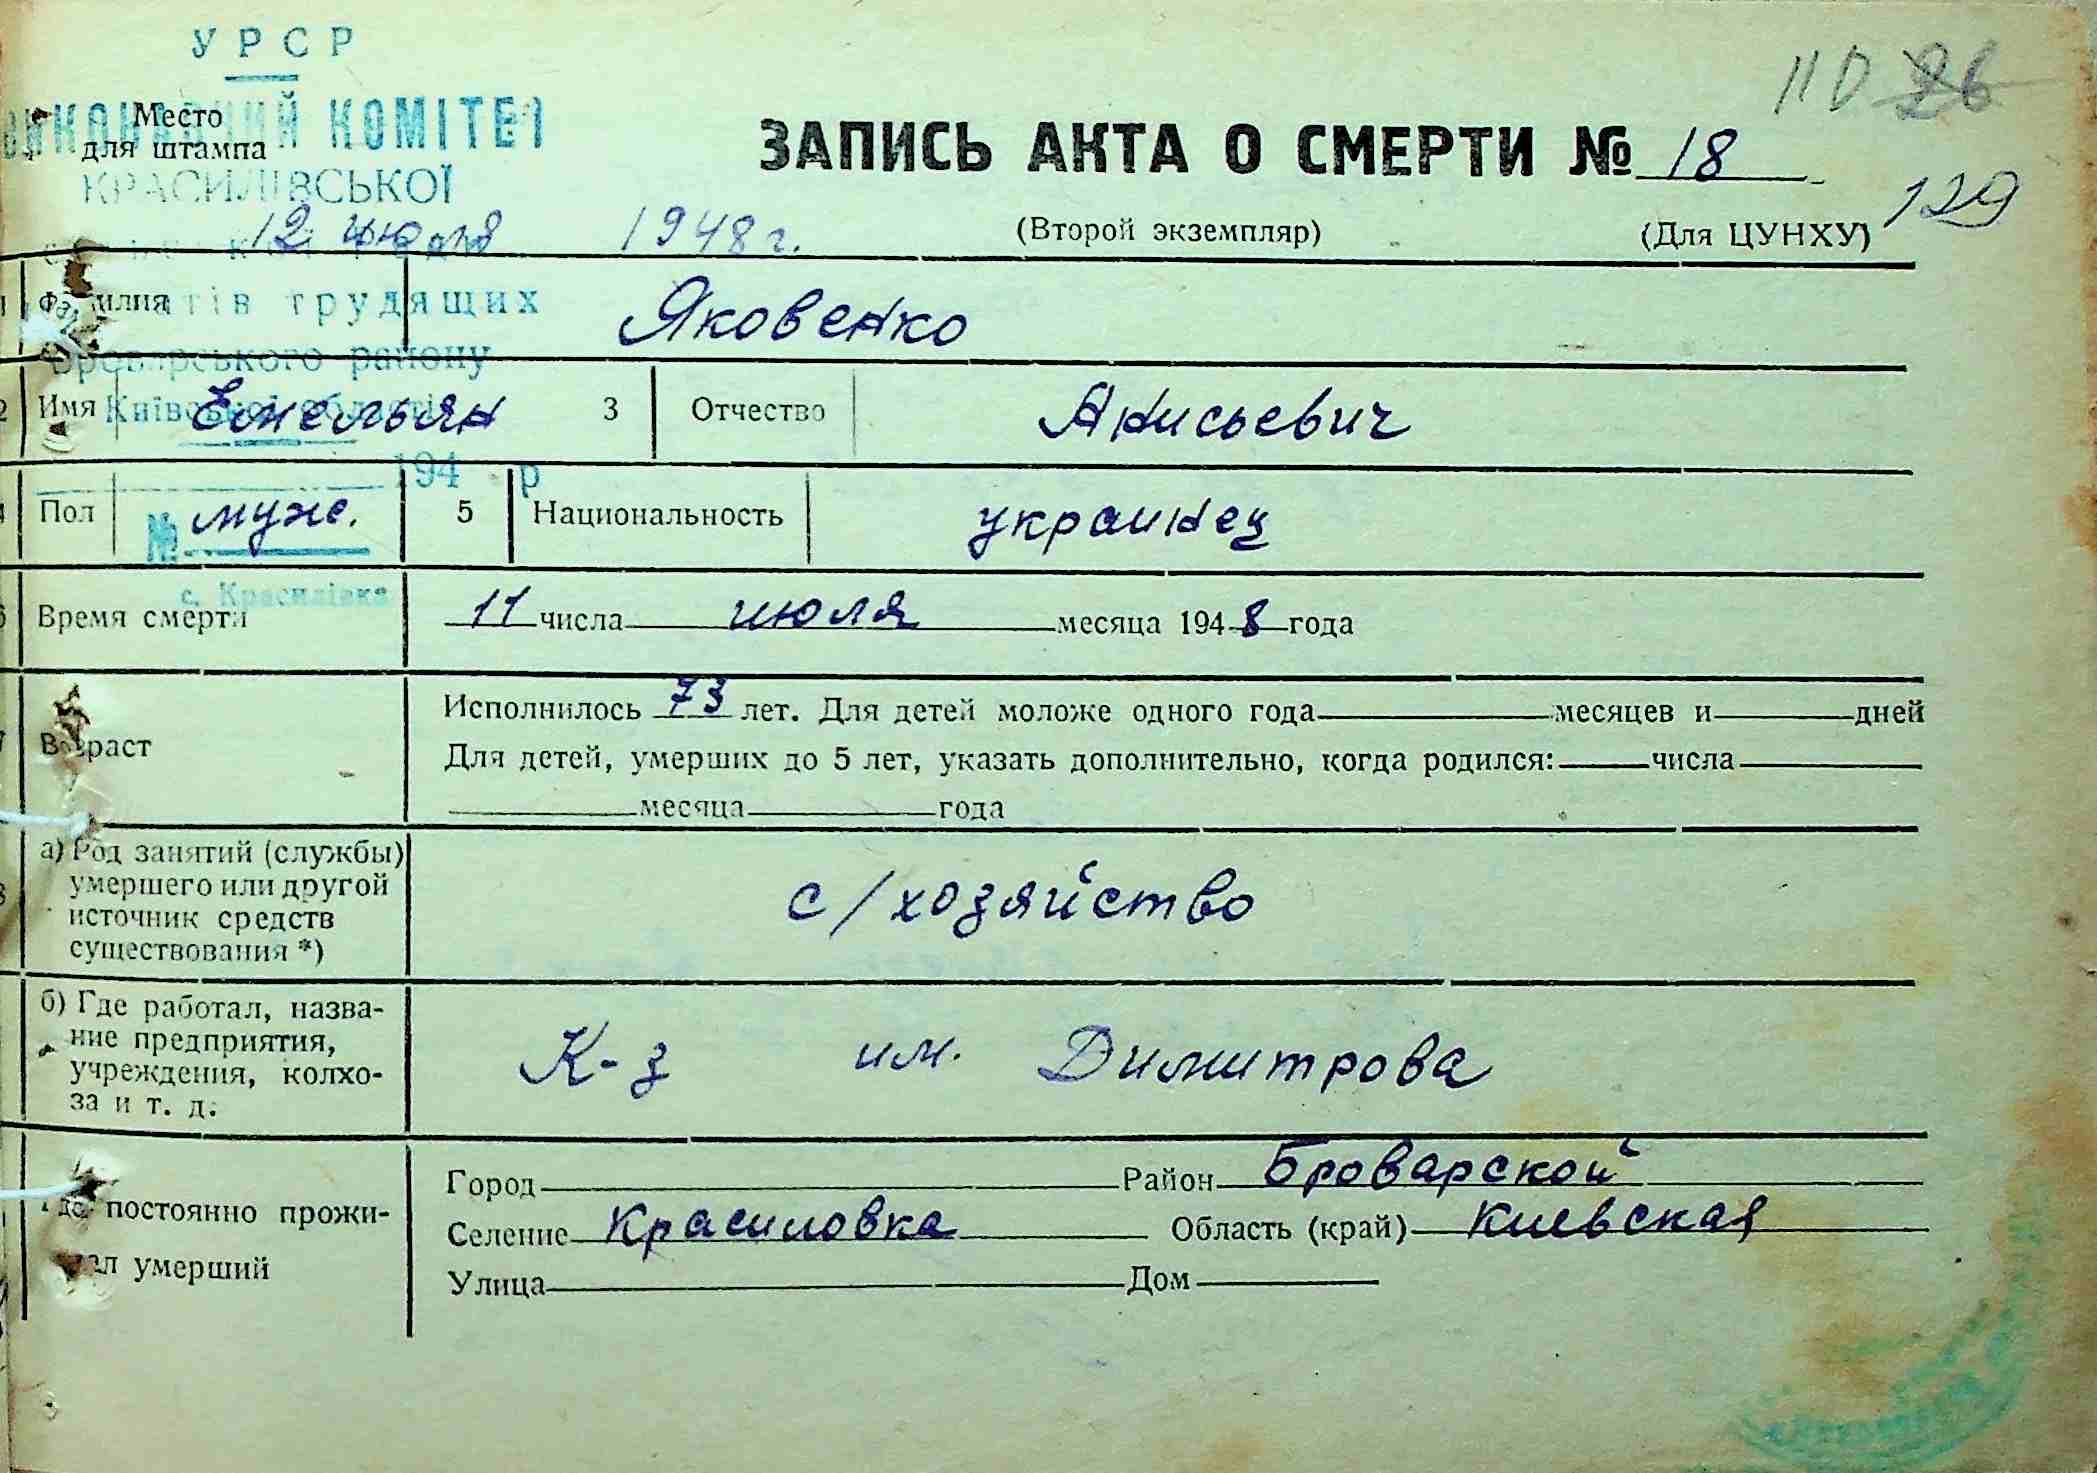 УРСР
110 26
Место
ВИКОНАВЧИЙ КОМІТЕТ
ЗАПИСЬ АКТА О СМЕРТИ № 18
для штампа
КРАСИЛІВСЬКОЇ
129
12 июля 1948 г.
(Второй экземпляр) (Для ЦУНХУ)
Фамилия Яковенко
трудящих
Броварського району
2 Имя Емельян 3 Отчество Анисьевич
Київської області
194 р
Пол муж. 5 Национальность украинец
№
с. Красилівка
Время смерти 11 числа июля месяца 1948 года
Исполнилось 73 лет. Для детей моложе одного года месяцев и дней
Возраст
Для детей, умерших до 5 лет, указать дополнительно, когда родился: числа
месяца года
а) Род занятий (службы)
умершего или другой
источник средств
существования *)
с/хозяйство
б) Где работал, назва-
ние предприятия,
учреждения, колхо-
за и т. д.
К-з им. Димитрова
Город Район Броварской
постоянно прожи-
Селение Красиловка Область (край) Киевская
вал умерший
Улица Дом